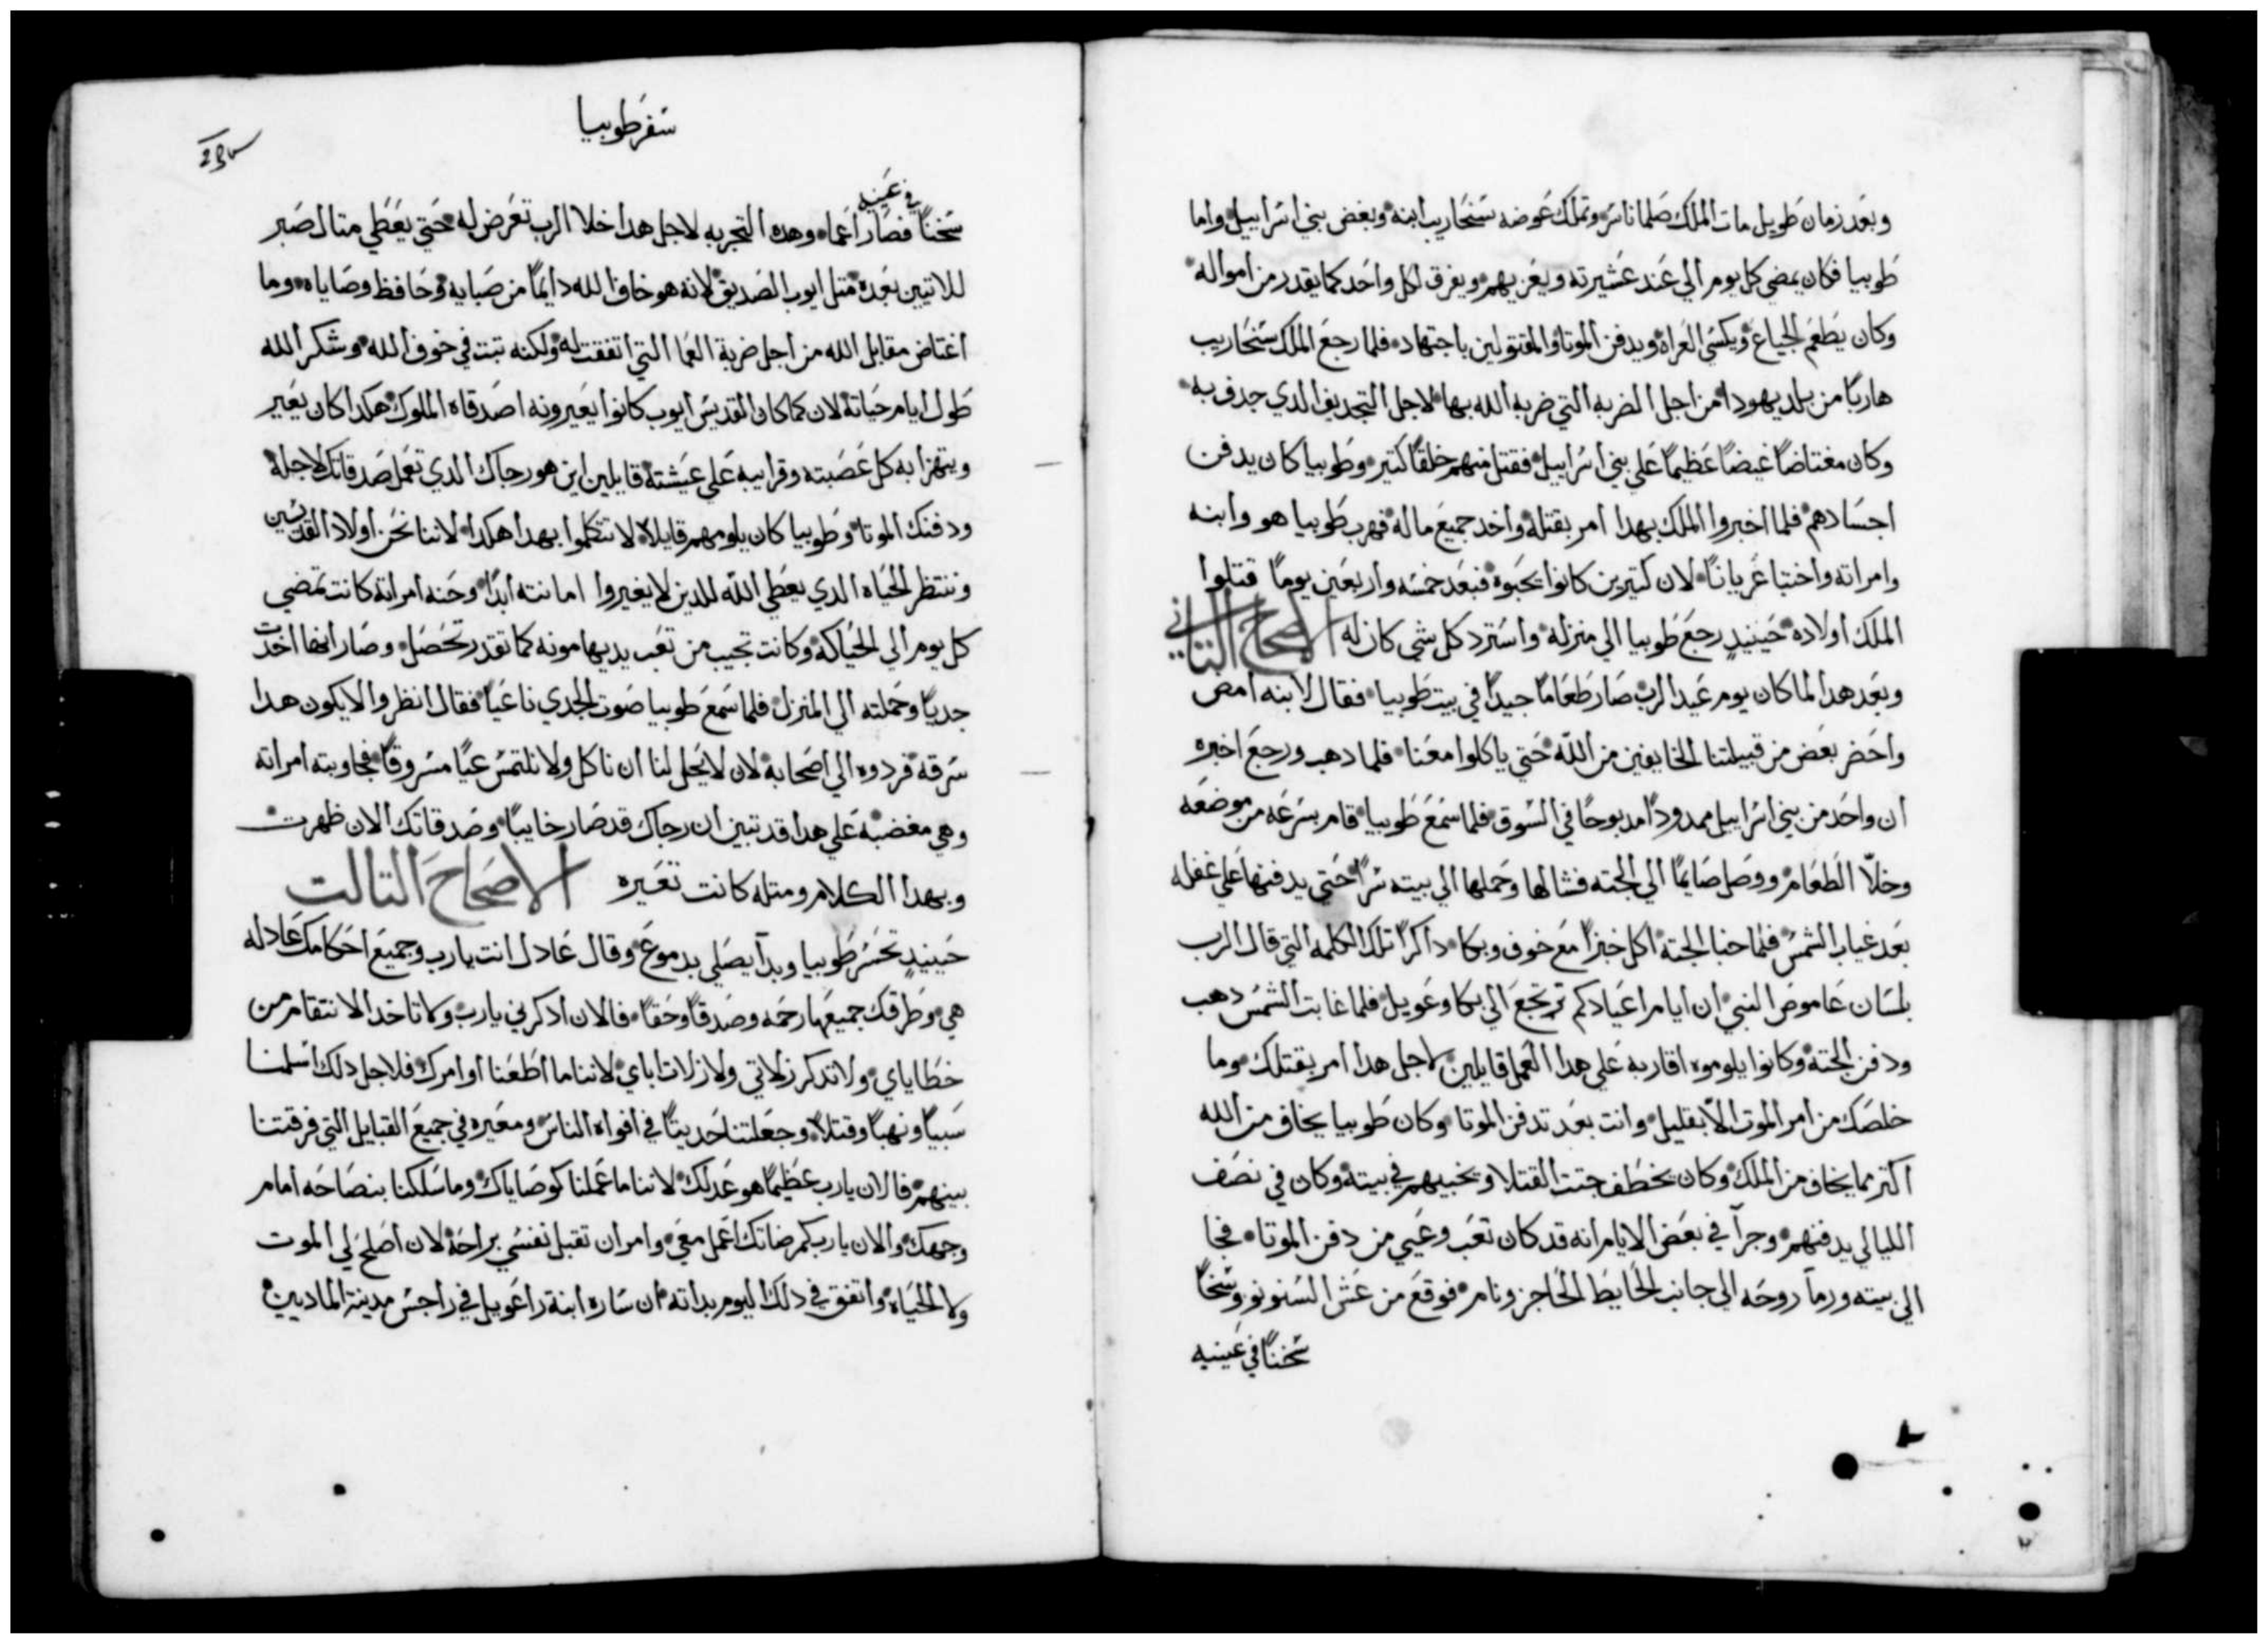 وبعد زمان طويل مات الملك صلماناسر وتملك عوضه سنحاريب ابنه وبغض بني اسراييل واما
طوبيا فكان يمضي كل يوم الي عند عشيرته ويعزيهم ويفرق لكل واحد كما يقدر من امواله
وكان يطعم الجياع ويكسي العراه ويدفن الموتا والمقتولين باجتهاد فلما رجع الملك سنحاريب
هاربًا من بلد يهودا من اجل الضربه التي ضربه الله بها لاجل التجديف الدي جدف به
وكان مغتاضًا غيضًا عظيمًا علي بني اسراييل فقتل منهم خلقًا كتير وطوبيا كان يدفن
اجسادهم فلما اخبروا الملك بهدا امر بقتله واخد جميع ماله فهرب طوبيا هو وابنه
وامراته واختبا عريانًا لان كتيرين كانوا يحبوه فبعد خمسه واربعين يومًا قتلوا
الملك اولاده حينيدٍ رجع طوبيا الي منزله واسترد كل شي كان له الاصحاح التاني
وبعد هدا لما كان يوم عيد الرب صار طعامًا جيدًا في بيت طوبيا فقال لابنه امض
واحضر بعض من قبيلتنا الخايفين من الله حتي ياكلوا معنا فلما دهب ورجع اخبره
ان واحد من بني اسراييل ممدودًا مدبوحًا في السوق فلما سمع طوبيا قام بسرعه من موضعه
وخلّا الطعام ووصل صايمًا الي الجته فشالها وحملها الي بيته سرًا حتي يدفنها علي غفله
بعد غياب الشمس فلما خبا الجته اكل خبزًا مع خوف وبكا داكرًا تلك الكلمه التي قال الرب
بلسان عاموص النبي ان ايام اعيادكم ترتجع الي بكا وعويل فلما غابت الشمس دهب
ودفن الجته وكانوا يلوموه اقاربه علي هدا العمل قايلين لاجل هدا امر بقتلك وما
خلصك من امر الموت الا بقليل وانت بعد تدفن الموتا وكان طوبيا يخاف من الله
اكتر مما يخاف من الملك وكان يخطف جتت القتلا ويخبيهم في بيته وكان في نصف
الليالي يدفنهم وجرآ في بعض الايام انه قد كان تعب وعيي من دفن الموتا فجا
الي بيته ورمآ روحه الي جانب الحايط الحاجز ونام فوقع من عش السنونو وسخًا
سخنًا في عينيه
سفر طوبيا
سخنًا في عينيه فصار اعما وهده التجربه لاجل هدا خلا الرب تعرض له حتي يعطي متال صبر
للاتيين بعده متل ايوب الصديق لانه هو خاف الله دايمًا من صبايه وحافظ وصاياه وما
اغتاض مقابل الله من اجل ضربة العما التي اتفقت له ولكنه تبت في خوف الله وشكر الله
طول ايام حياته لان كما كان القديس ايوب كانوا يعيرونه اصدقاه الملوك هكدا كان يعير
ويتهزا به كل عصبته وقرايبه علي عيشته قايلين اين هو رجاك الدي تعمل صدقاتك لاجله
ودفنك الموتا وطوبيا كان يلومهم قايلاً لا تتكلموا بهدا هكدا لاننا نحن اولاد القديسين
وننتظر الحياه الدي يعطي الله للدين لا يغيروا امانته ابدًا وحنه امراته كانت تمضي
كل يوم الي الحياكه وكانت تجيب من تعب يديها مونه كما تقدر تحصل وصار انها اخدت
جديًا وحملته الي المنزل فلما سمع طوبيا صوت الجدي ناعيًا فقال انظروا لا يكون هدا
سرقه فردوه الي اصحابه لان لا يحل لنا ان ناكل ولا نلتمس عيًا مسروقًا فجاوبته امراته
وهي مغضبه علي هدا قد تبين ان رجاك قد صار خايبًا وصدقاتك الان ظهرت
وبهدا الكلام ومتله كانت تعيره الاصحاح التالت
حينيدٍ تحسر طوبيا وبدآ يصلي بدموع وقال عادل انت يا رب وجميع احكامك عادله
هي وطرقك جميعها رحمه وصدقًا وحقًا فالان ادكرني يا رب ولا تاخد الانتقام من
خطاياي ولا تدكر زلاتي ولا زلات اباي لاننا ما اطعنا اوامرك فلاجل دلك اسلمنا
سبيًا ونهبًا وقتلاً وجعلتنا حديتًا في افواه الناس ومعيره في جميع القبايل التي فرقتنا
بينهم فالان يا رب عظيمًا هو عدلك لاننا ما عملنا كوصاياك وما سلكنا بنصاحه امام
وجهك والان يا رب كمرضاتك اعمل معي وامر ان تقبل نفسي براحه لان اصلح لي الموت
ولا الحياه واتفق في دلك اليوم بداته ان ساره ابنة راعويل في راجس مدينة الماديين